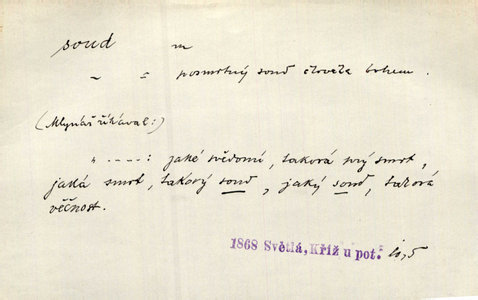 soud m
~ = posmrtný soud člověka bohem.
(Mlynář říkával:)
„ ....: jaké svědomí, taková prý smrt,
jaká smrt, takový soud, jaký soud, taková
věčnost.
1868 Světlá, Kříž u pot. 10,5